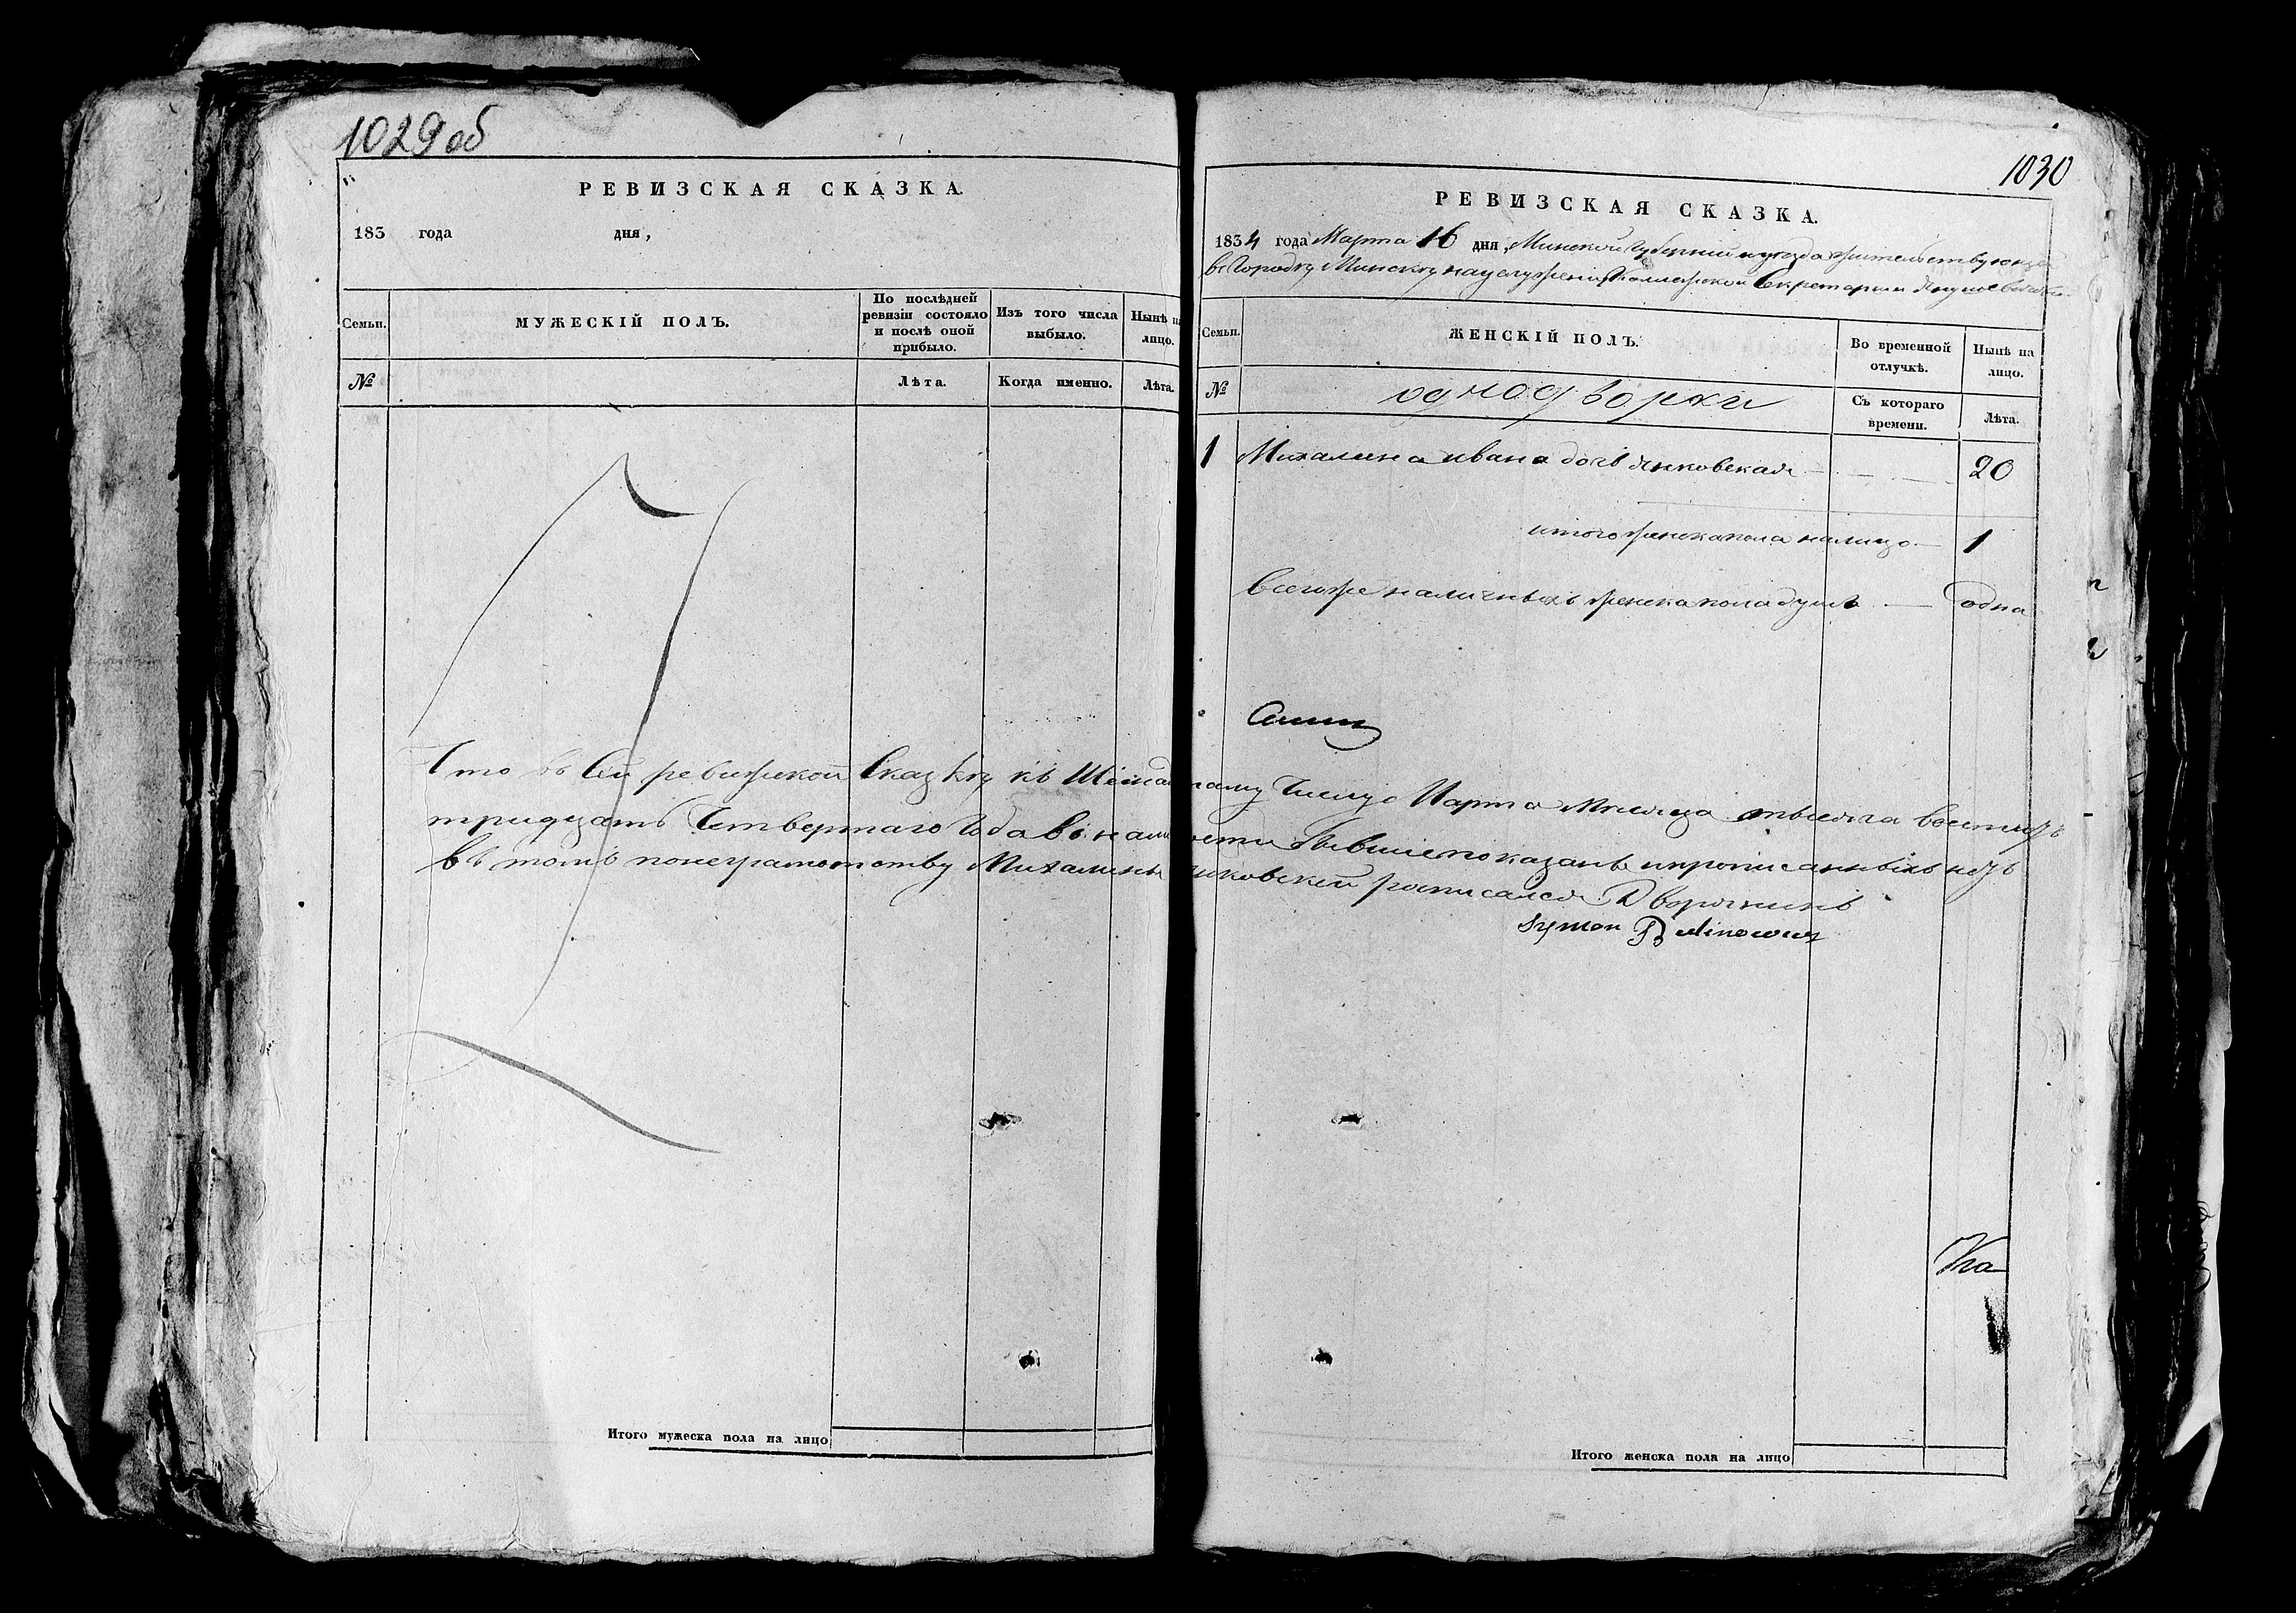 1029 об
РЕВИЗСКАЯ СКАЗКА.
183 года дня,
Семьи.
МУЖЕСКІЙ ПОЛЪ.
По послѣдней ревизіи состояло и послѣ оной прибыло.
Изъ того числа выбыло.
Нынѣ на лицо.
№
Лѣта.
Когда именно.
Лѣта.
Итого мужеска пола на лицо
1030
РЕВИЗСКАЯ СКАЗКА.
1834 года Марта 16 дня, Минской Губерніи и уезда жительствующей
въ Городу Минску на услужении Коллежской Секретарши
Семьи.
ЖЕНСКІЙ ПОЛЪ.
Во временной отлучкѣ.
Нынѣ на лицо.
№
однодворки
Съ котораго времени.
Лѣта.
1 Михалина Ивана дочь Янковская 20
итого женска пола налицо 1
Всего же наличныхъ женска пола душъ одна
Что въ сей ревижской Сказку къ числу Марта Месяца тысяча восемсотъ
тридцать Четвертаго Года въ наличности бывшие показаны и прописанныхъ нѣтъ
въ томъ по неграмотству Михалины Янковской росписался Дворянинъ
Symon
Ка
Итого женска пола на лицо